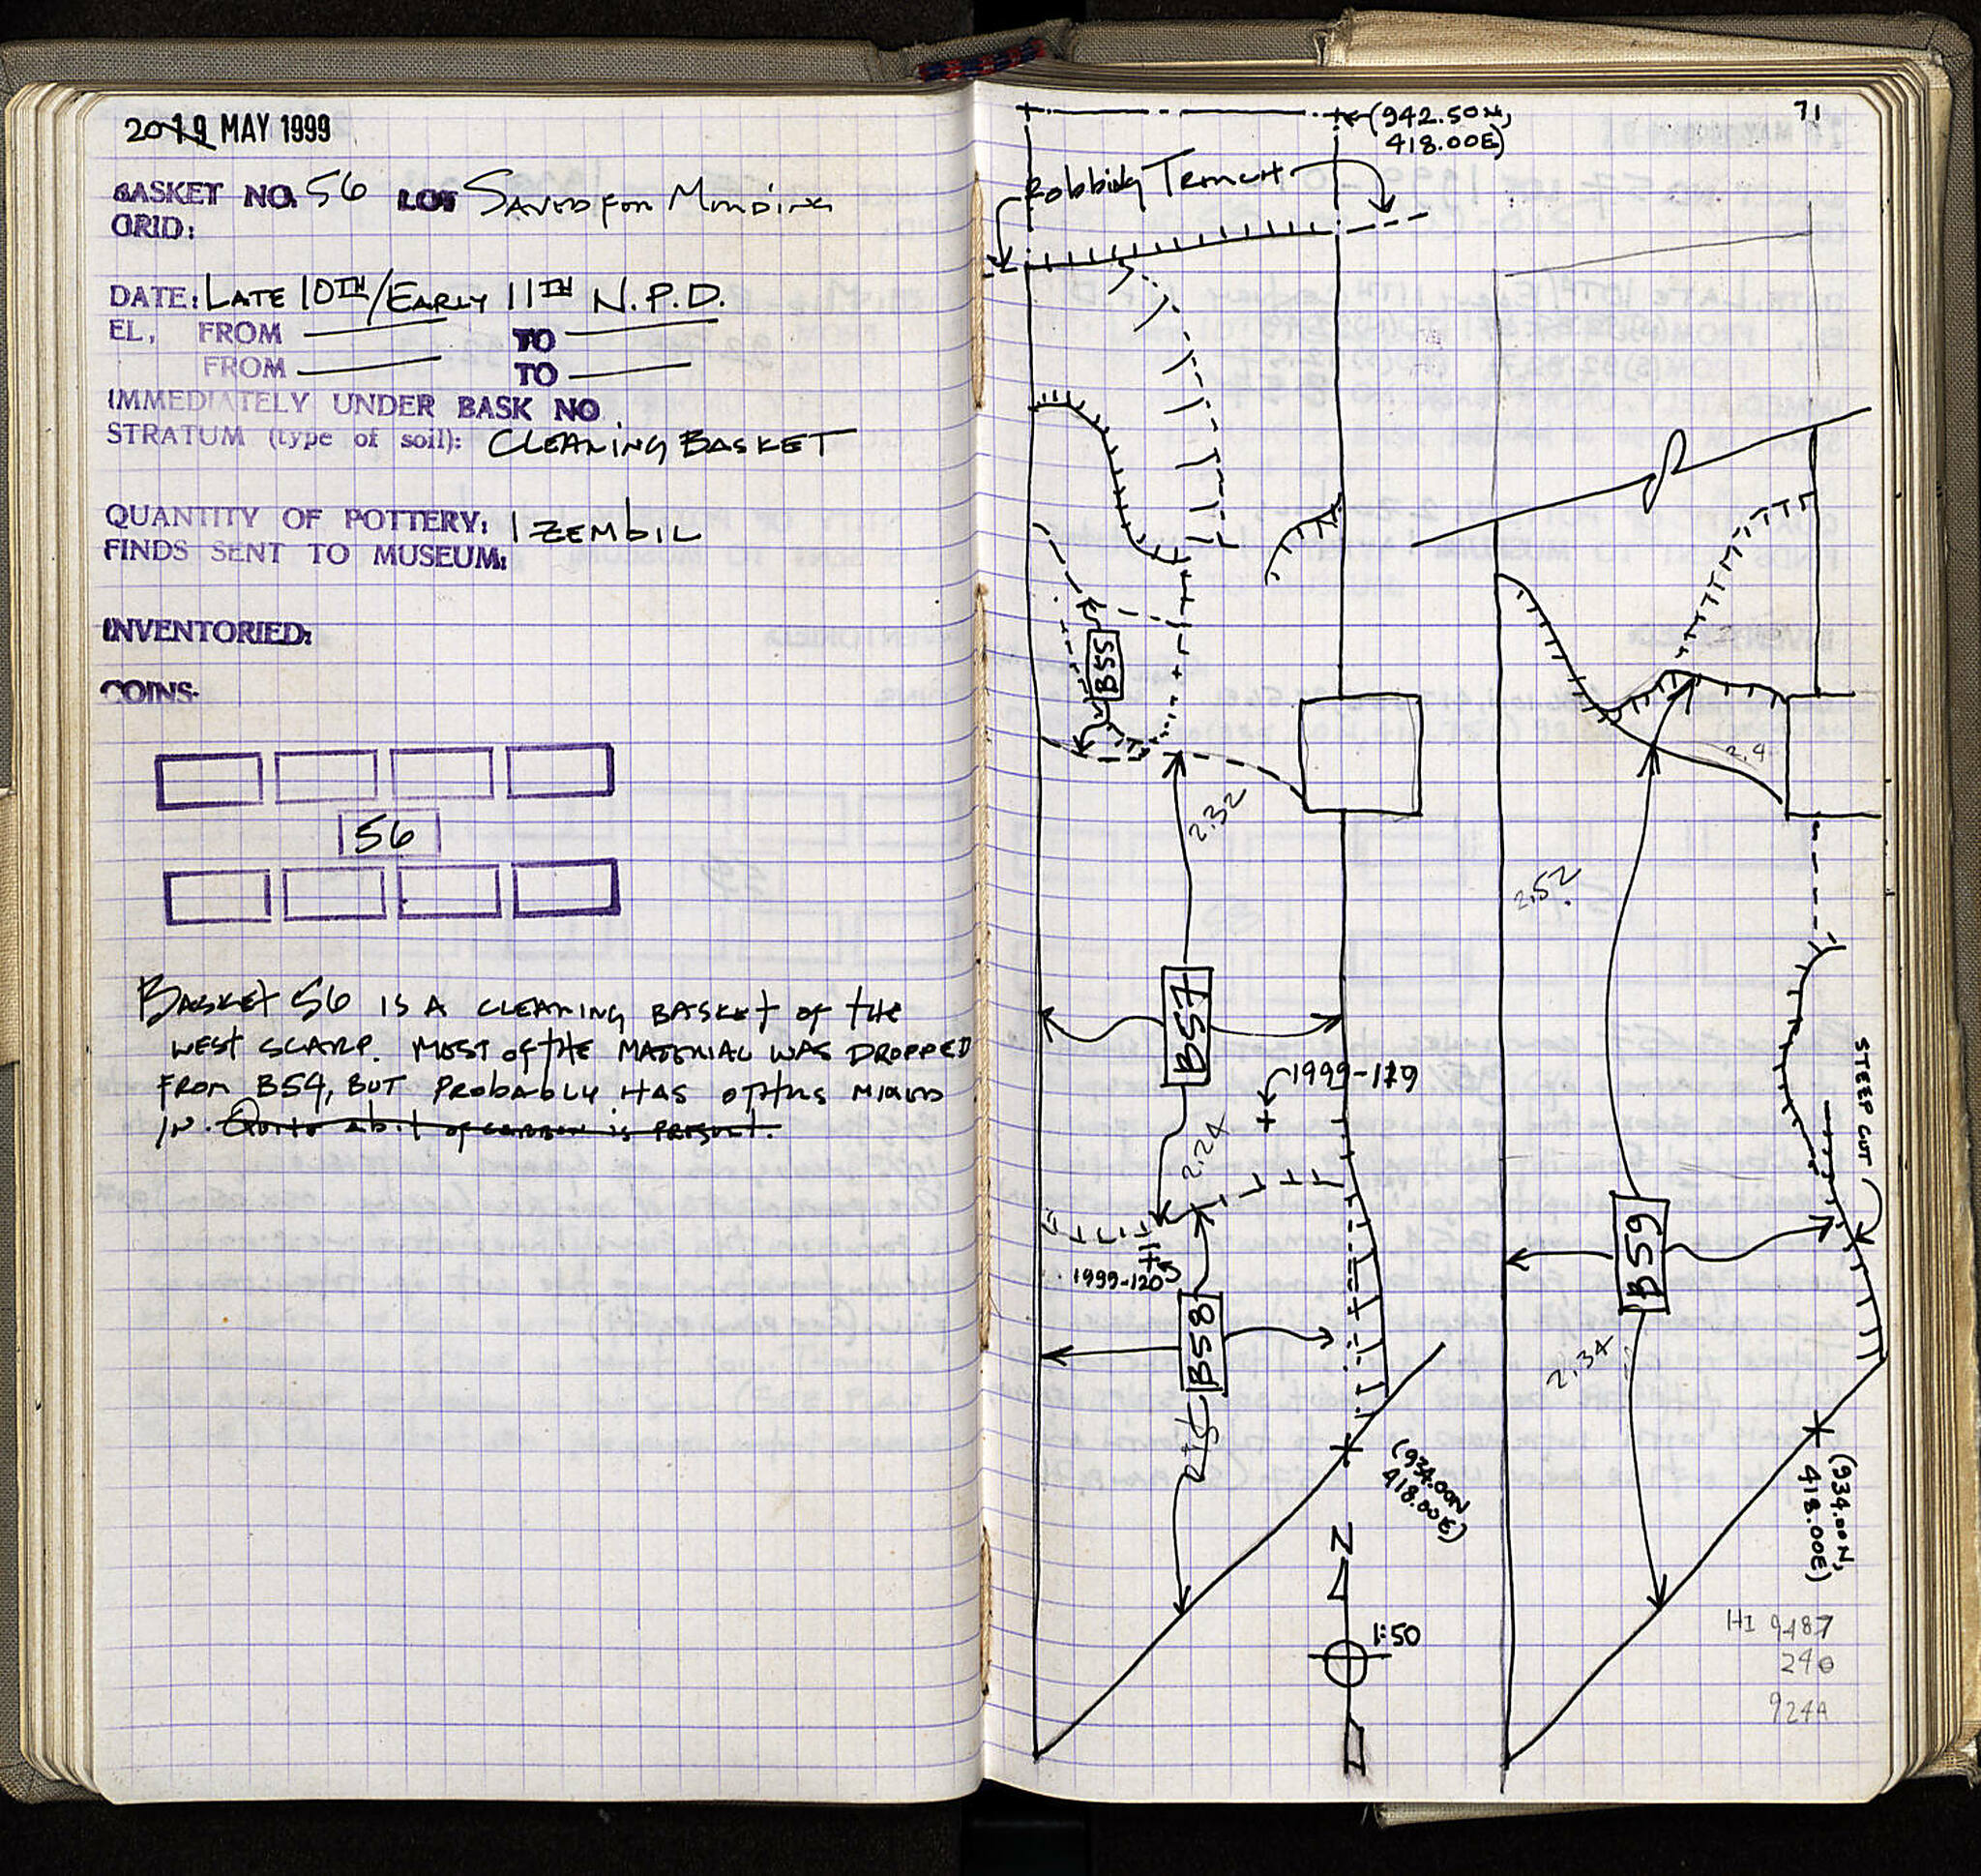 20 19 MAY 1999
BASKET NO. 56 LOT SAVED FOR MENDING
GRID:
DATE: LATE 10TH/EARLY 11TH N.P.D.
EL, FROM TO
FROM TO
IMMEDIATELY UNDER BASK NO
STRATUM (type of soil): CLEANING BASKET
QUANTITY OF POTTERY: 1 ZEMBIL
FINDS SENT TO MUSEUM:
INVENTORIED:
COINS:
56
BASKET 56 IS A CLEANING BASKET OF THE
WEST SCARP. MOST OF THE MATERIAL WAS DROPPED
FROM B54, BUT PROBABLY HAS OTHERS MIXED
IN. Quite a bit of carbon is present.
71
(942.50N,
418.00E)
Robbing Trench
B55
2.32
2.4
2.52
B57
1999-119
STEEP CUT
2.24
1999-120
B59
B58
2.34
(934.00N
418.00E)
(934.00N,
418.00E)
N
1:50
HI 9487
240